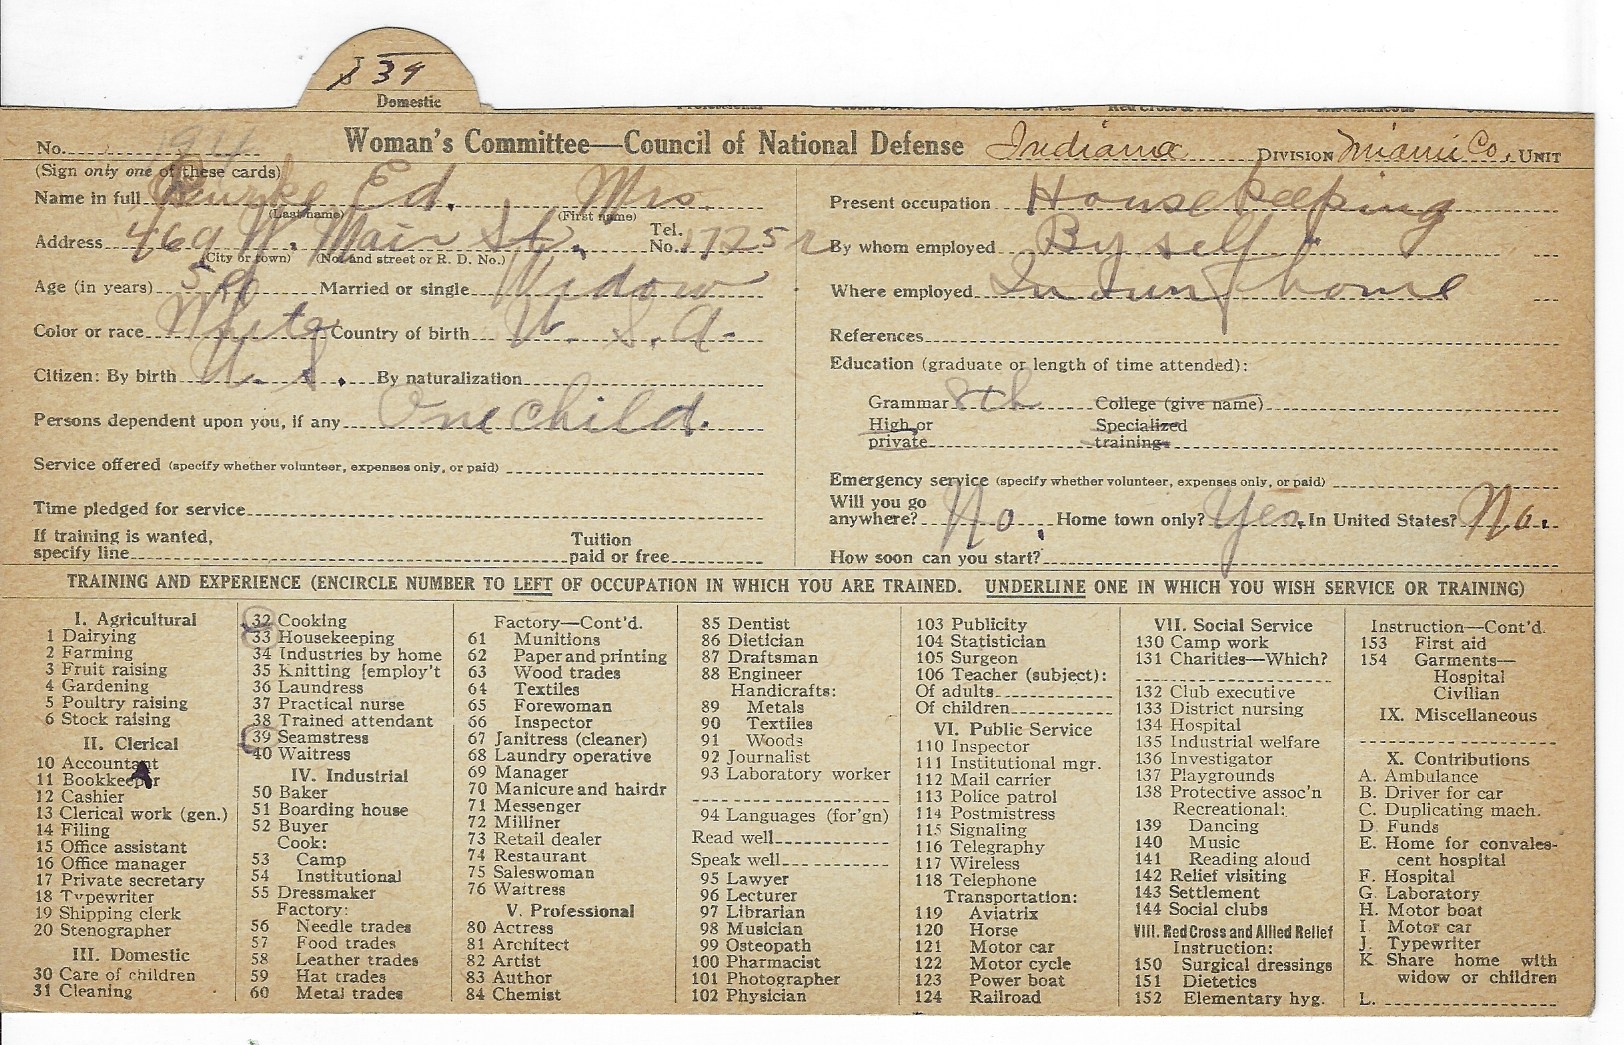 39
Domestic
No. 194 Woman's Committee—Council of National Defense Indiana DIVISION Miami Co. UNIT
(Sign only one of these cards)
Name in full Ed. Mrs.
(Last name) (First name)
Address 469 W. Main St. Tel. No. 1725
(City or town) (No. and street or R. D. No.)
Age (in years) 59 Married or single Widow
Color or race White Country of birth U. S. A.
Citizen: By birth U. S. By naturalization
Persons dependent upon you, if any One child.
Service offered (specify whether volunteer, expenses only, or paid)
Time pledged for service
If training is wanted,
specify line
Tuition
paid or free
Present occupation Housekeeping
By whom employed By self
Where employed In own home
References
Education (graduate or length of time attended):
Grammar 8th College (give name)
High or
private
Specialized
training
Emergency service (specify whether volunteer, expenses only, or paid)
Will you go
anywhere? No. Home town only? Yes. In United States? No.
How soon can you start?
TRAINING AND EXPERIENCE (ENCIRCLE NUMBER TO LEFT OF OCCUPATION IN WHICH YOU ARE TRAINED. UNDERLINE ONE IN WHICH YOU WISH SERVICE OR TRAINING)
I. Agricultural
1 Dairying
2 Farming
3 Fruit raising
4 Gardening
5 Poultry raising
6 Stock raising
II. Clerical
10 Accountant
11 Bookkeeper
12 Cashier
13 Clerical work (gen.)
14 Filing
15 Office assistant
16 Office manager
17 Private secretary
18 Typewriter
19 Shipping clerk
20 Stenographer
III. Domestic
30 Care of children
31 Cleaning
32 Cooking
33 Housekeeping
34 Industries by home
35 Knitting [employ't
36 Laundress
37 Practical nurse
38 Trained attendant
39 Seamstress
40 Waitress
IV. Industrial
50 Baker
51 Boarding house
52 Buyer
Cook:
53 Camp
54 Institutional
55 Dressmaker
Factory:
56 Needle trades
57 Food trades
58 Leather trades
59 Hat trades
60 Metal trades
Factory—Cont'd.
61 Munitions
62 Paper and printing
63 Wood trades
64 Textiles
65 Forewoman
66 Inspector
67 Janitress (cleaner)
68 Laundry operative
69 Manager
70 Manicure and hairdr
71 Messenger
72 Milliner
73 Retail dealer
74 Restaurant
75 Saleswoman
76 Waitress
V. Professional
80 Actress
81 Architect
82 Artist
83 Author
84 Chemist
85 Dentist
86 Dietician
87 Draftsman
88 Engineer
Handicrafts:
89 Metals
90 Textiles
91 Woods
92 Journalist
93 Laboratory worker
94 Languages (for'gn)
Read well
Speak well
95 Lawyer
96 Lecturer
97 Librarian
98 Musician
99 Osteopath
100 Pharmacist
101 Photographer
102 Physician
103 Publicity
104 Statistician
105 Surgeon
106 Teacher (subject):
Of adults
Of children
VI. Public Service
110 Inspector
111 Institutional mgr.
112 Mail carrier
113 Police patrol
114 Postmistress
115 Signaling
116 Telegraphy
117 Wireless
118 Telephone
Transportation:
119 Aviatrix
120 Horse
121 Motor car
122 Motor cycle
123 Power boat
124 Railroad
VII. Social Service
130 Camp work
131 Charities—Which?
132 Club executive
133 District nursing
134 Hospital
135 Industrial welfare
136 Investigator
137 Playgrounds
138 Protective assoc'n
Recreational:
139 Dancing
140 Music
141 Reading aloud
142 Relief visiting
143 Settlement
144 Social clubs
VIII. Red Cross and Allied Relief
Instruction:
150 Surgical dressings
151 Dietetics
152 Elementary hyg.
Instruction—Cont'd.
153 First aid
154 Garments—
Hospital
Civilian
IX. Miscellaneous
X. Contributions
A. Ambulance
B. Driver for car
C. Duplicating mach.
D. Funds
E. Home for convales-
cent hospital
F. Hospital
G. Laboratory
H. Motor boat
I. Motor car
J. Typewriter
K Share home with
widow or children
L.